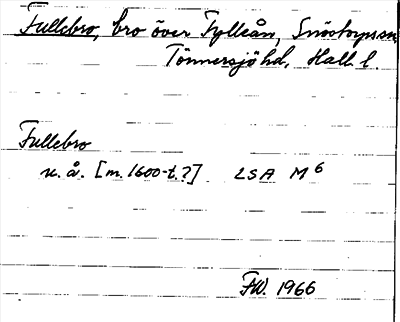 Fullebro, bro över Fylleån, Snöstorps sn,
Tönnersjö hd, Hall. l.
Fullebro
u. å. [m. 1600-t.?] LSA M 6
FW. 1966